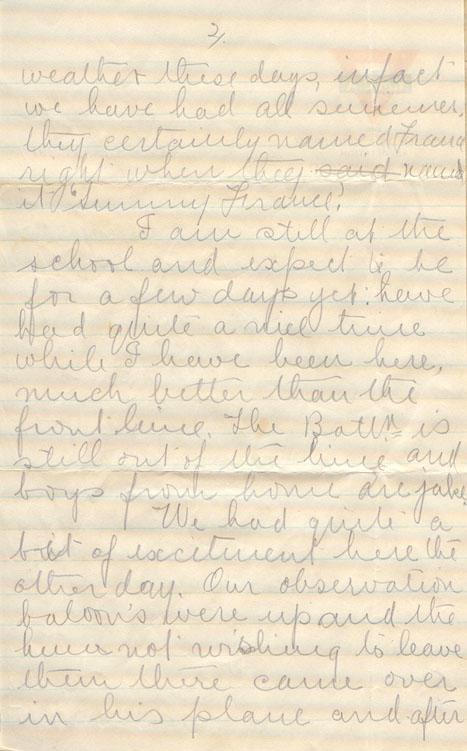 2/.
weather these days, infact
we have had all summer,
they certainly named France
right when they said named
it "Sunny France".
I am still at the
school and expect to be
for a few days yet. have
had quite a nice time
while I have been here,
much better than the
front line. The Battn is
still out of the line and
boys from home are jake.
We had quite a
bit of excitment here the
other day. Our observation
baloon's were up and the
hun not wishing to leave
them there came over
in his plane and after